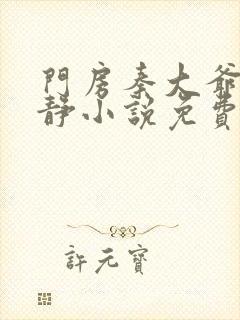 門房秦大爺
靜小說免費
許元寶